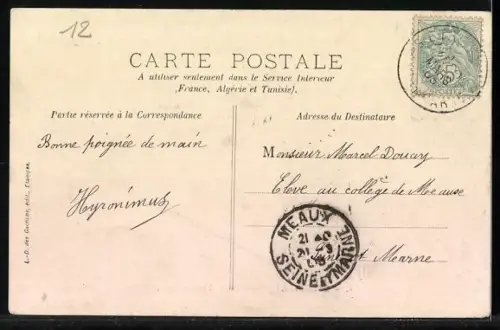 12
CARTE POSTALE
A utiliser seulement dans le Service Intérieur
(France, Algérie et Tunisie).
Partie réservée à la Correspondance
Adresse du Destinataire
Bonne poignée de main
Hyronimus
Monsieur Marcel Douary
Élève au collège de Meaux
et Marne
MEAUX
21
SEINE ET MARNE
L.-D. des Gachons, édit., Etampes.